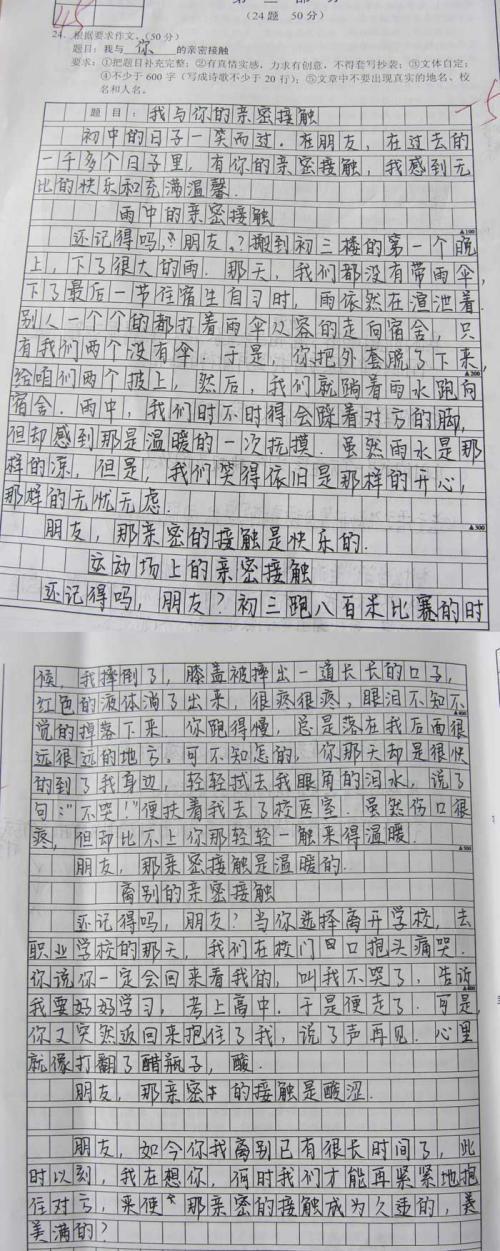 第二部分
(24题 50分)
45
24. 根据要求作文。(50分)
题目:我与 你 的亲密接触
要求:①把题目补充完整;②有真情实感,力求有创意,不得套写抄袭;③文体自定;
④不少于600字(写成诗歌不少于20行);⑤文章中不要出现真实的地名、校
名和人名。
-5
题目:我与你的亲密接触
初中的日子一笑而过.在朋友,在过去的
一千多个日子里,有你的亲密接触,我感到无
比的快乐和充满温馨.
雨中的亲密接触
▲100
还记得吗,“朋友,?搬到初三楼的第一个晚
上,下了很大的雨.那天,我们都没有带雨伞,
下了最后一节住宿生自习时,雨依然在渲泄着.
别人一个个的都打着雨伞从容的走向宿舍,只
有我们两个没有伞.于是,你把外套脱了下来,
▲200
给咱们两个披上,然后,我们就踏着雨水跑向
宿舍.雨中,我们时不时得会踩着对方的脚,
但却感到那是温暖的一次抚摸.虽然雨水是那
样的凉,但是,我们笑得依旧是那样的开心,
那样的无忧无虑.
▲300
朋友,那亲密的接触是快乐的.
运动场上的亲密接触
还记得吗,朋友?初三跑八百米比赛的时
候,我摔倒了,膝盖被摔出一道长长的口子,
红色的液体淌了出来,很疼很疼,眼泪不知不
▲400
觉的掉落下来.你跑得慢,总是落在我后面很
远很远的地方.可不知怎的,你那天却是很快
的到了我身边,轻轻拭去我眼角的泪水,说了
句:“不哭!”便扶着我去了校医室.虽然伤口很
疼,但却比不上你那轻轻一触来得温暖.
▲500
朋友,那亲密接触是温暖的.
离别的亲密接触
还记得吗,朋友?当你选择离开学校,去
职业学校的那天,我们在校门口抱头痛哭.
你说你一定会回来看我的,叫我不哭了,告诉
▲600
我要好好学习,考上高中.于是便走了.可是,
你又突然返回来抱住了我,说了声再见.心里
就像打翻了醋瓶子,酸.
朋友,那亲密的接触是酸涩.
朋友,如今你我离别已有很长时间了,此
时以刻,我在想你,何时我们才能再紧紧地抱
住对方,来使那亲密的接触成为久违的,美
美满的?